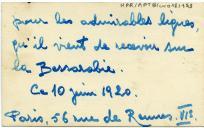 pour les admirables lignes,
qu'il vient de recevoir sur
la Bessarabie.
Ce 10 juin 1920.
Paris, 56 rue de Rennes. VIe.